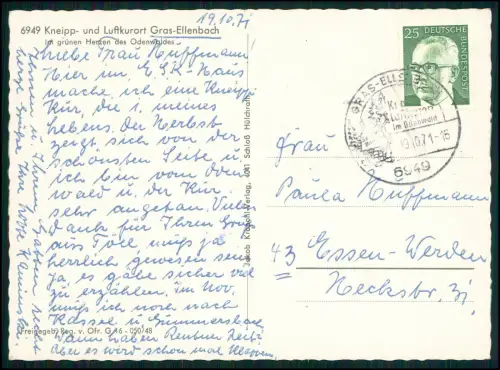 19.10.71
6949 Kneipp- und Luftkurort Gras-Ellenbach
im grünen Herzen des Odenwaldes
Liebe Frau Nuffmann!
Hier im E.S.K-Haus
mache ich eine Kneipp
Kur, die 1. meines
Lebens. Der Herbst
zeigt sich von der
schönsten Seite u.
ich bin vom Oden
wald u. der Kur
sehr angetan. Vielen
Dank für Ihren Gruß
aus Tölz muß ja
herrlich gewesen sein
Ja es gäbe sicher viel
zu erzählen. Im Nov.
muß ich noch nach
Kassel u. Gummersbach
Wann haben Rentner Zeit?
Aber es wird schon mal klappen.
Ihnen u. Ihrem Gatten recht
herzl. Grüße Ihre
Freigegeb. Reg. v. Ofr. G 16 - 050/48
Jakob Krapohl-Verlag, 4041 Schloß Hülchrath
25
DEUTSCHE
BUNDESPOST
GRAS-ELLENBACH
im Odenwald
19.10.71-16
6949
Frau
Paula Nuffmann
43 Essen-Werden
Neckstr. 31